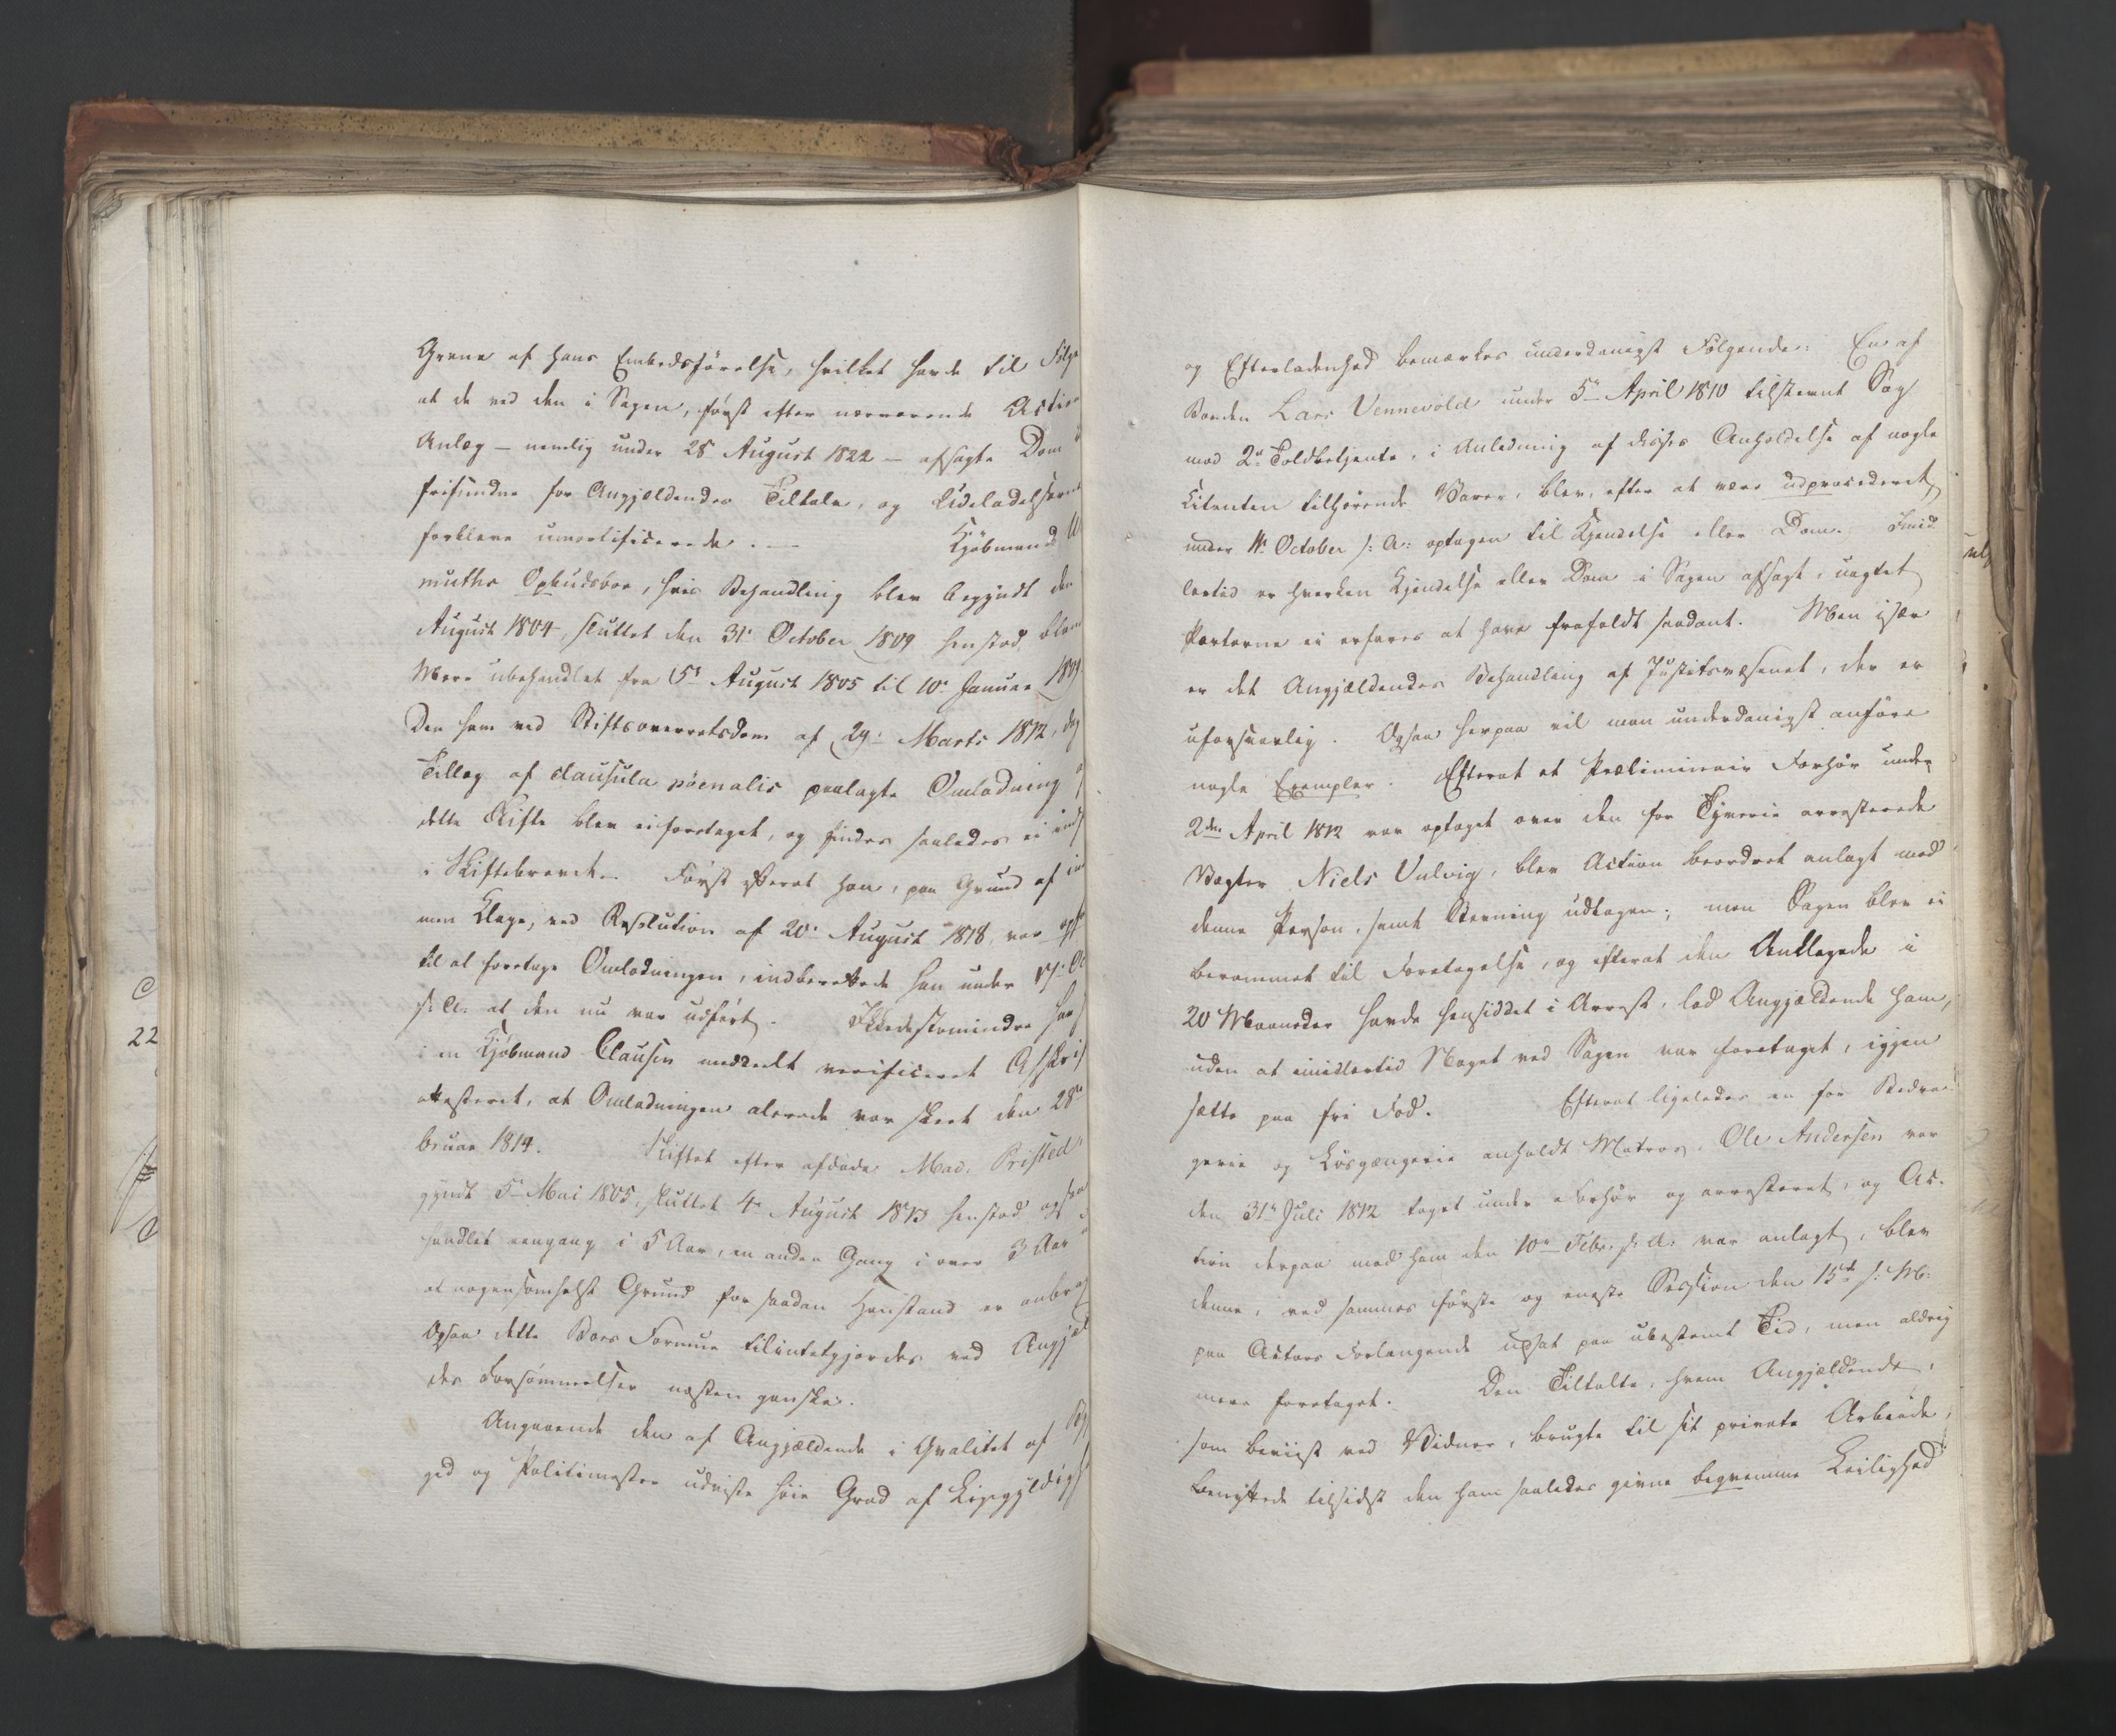 Grene af hans Embedsförelse, hvilket havde til Følge
at de ved den i Sagen, først efter nærværende Action
Anlæg – nemlig under 28 August 1822 – afsagte Dom
frifundne for Angjældendes Tiltale, og Udeladelserne
forbleve umortificerede. – Kjöbmand
muths Opbudsboe, hvis Behandling blev begyndt den
August 1804, sluttet den 31 October 1809 henstod blandt
Mere ubehandlet fra 5te August 1805 til 10de Januar 1809.
Den ham ved Stiftsoverretsdom af 29 Marts 1812, 
Tillæg af clausula poenalis paalagte Omlodning
dette Skifte blev ei foretaget, og findes saaledes ei
i Skiftebrevet. Først efterat han, paa Grund af
men Klage, ved Resolution af 20de August 1818, var
til at foretage Omlodningen, indberettede han under
s: A: at den nu var udført. Ikkedestomindre
i en Kjöbmand Clausen meddeelt verificeret Afskrift
attesteret, at Omlodningen allerede var skeet den 28de
bruar 1814. Skiftet efter afdøde Mad. Pristed
gyndt 5te Mai 1805, sluttet 4de August 1813 henstod
handlet eengang i 5 Aar, en anden Gang i over 3 Aar
at nogensomhelst Grund for saadan Henstand er
Ogsaa dette Boes Formue tilintetgjordes ved
des Forsömmelser næsten ganske.
Angaaende den af Angjældende i Qvalitet af
ged og Politimester udviste høie Grad af Ligegyldigh
og Efterladenhed bemærkes underdanigst Følgende: En af
Bonden Lars Vennevold under 5te April 1810 tilstevnt Sag
mod 2de Toldbetjente, i Anledning af disses Anholdelse af nogle
Citanten tilhørende Varer, blev, efter at være udprocederet,
under 11te October s: A: optagen til Kjendelse eller Dom. Imid
lertid er hverken Kjendelse eller Dom i Sagen afsagt, uagtet
Parterne ei erfares at have frafaldt saadant. Men især
er det Angjældendes Behandling af Justitsvæsenet, der er
uforsvarlig. Ogsaa herpaa vil man underdanigst anføre
nogle Exempler. Efterat et Præliminair Forhør under
2den April 1812 var optaget over den for Tyverie arresterede
Vægter Niels Vulvig, blev Action beordret anlagt mod
denne Person, samt Stevning udtagen; men Sagen blev ei
berammet til Foretagelse, og efterat den Anklagede i
20 Maaneder havde hensiddet i Arrest, lod Angjældende ham,
uden at imidlertid Noget ved Sagen var foretaget, igjen
sætte paa fri Fod. Efterat ligeledes en for Bedra-
gerie og Løsgængerie anholdt Matros, Ole Andersen var
den 31te Juli 1812 taget under Forhør og arresteret, og Ac-
tion derpaa mod ham den 10de Febr. s: A: var anlagt, blev
denne, ved sammes første og eneste Session den 15de s: M:
paa Actors Forlangende udsat paa ubestemt Tid, men aldrig
mere foretaget. Den Tiltalte, hvem Angjældende,
som beviist ved Vidner, brugte til sit private Arbeide,
benyttede tilsidst den ham saaledes givne beqvemme Leilighed
22